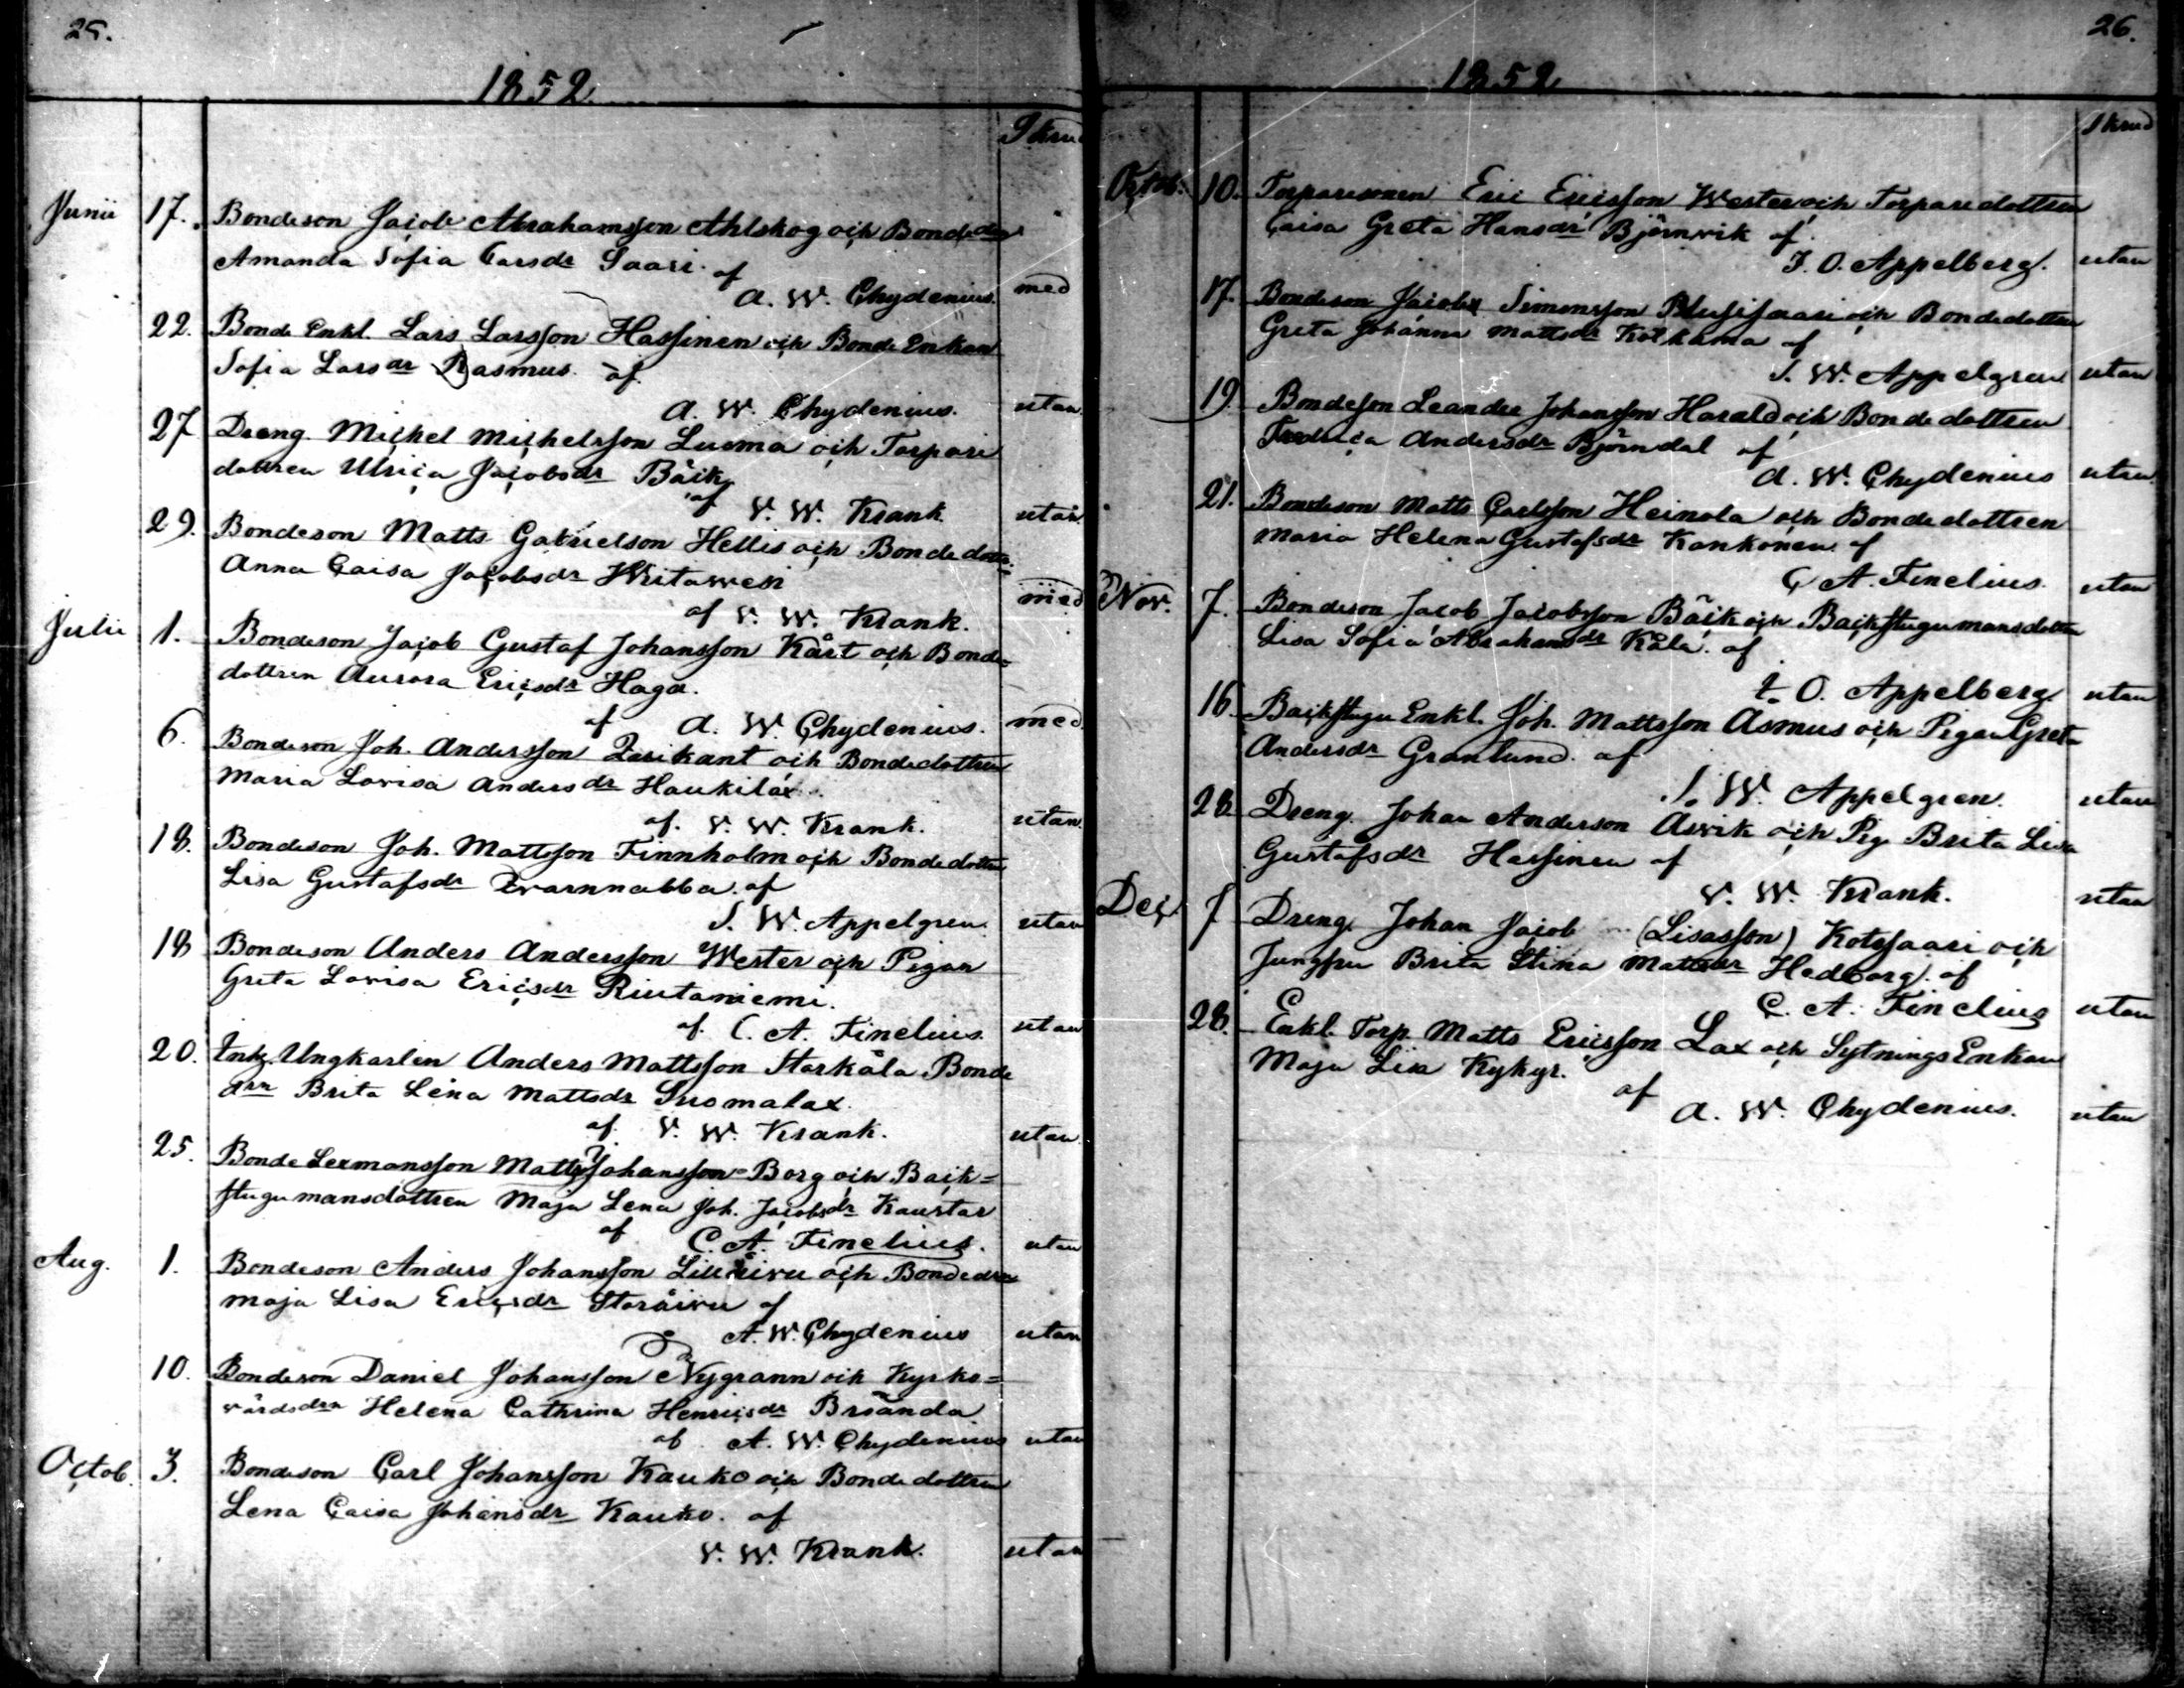 25.
1852
Skrud
Junii 17. Bondeson Jacob Abrahamsson Ahlskog och Bondedr
Amanda Sofia Carsdr Saari af
A. W. Chydenius. med
22. Bonde Enkl. Lars Larsson Hassinen och Bonde Enkan
Sofia Larsdr Rasmus af
A. W. Chydenius. utan
27 Dreng Michel Michelsson Luoma och Torpare
dottren Ulrica Jacobsdr Bäck
af V. W. Krank utan
29. Bondeson Matts Gabrielson Hellis och Bondedottr
Anna Caisa Jacobsdr Writawesi
af V. W. Krank. med
Julii 1. Bondeson Jacob Gustaf Johansson Kårt och Bonde=
dottren Aurora Ericsdr Haga.
af A. W. Chydenius. med
6. Bondeson Joh. Andersson Zarikant och Bondedottren
Maria Lovisa Andersdr Haukilax.
af. V. W. Krank. utan
18. Bondeson Joh. Mattsson Finnholm och Bondedottr
Lisa Gustafsdr Qvarnnabba af
J. W. Appelgren. utan
18 Bondeson Anders Andersson Wester och Pigan
Greta Lovisa Ericsdr Riutaniemi.
af. C. A. Finelius. utan
20. Ungkarlen Anders Mattsson Storkåla Bonde
drn Brita Lena Mattsdr Suomalax.
af V. W. Krank. utan
25. Bonde Lexmansson Matts Johansson Borg och Back=
stugumansdottren Maja Lena Joh. Jacobsdr Kaustar
af C. A. Finelius. utan
Aug. 1. Bondeson Anders Johansson Lillråivu och Bondedrn
Maja Lisa Ericsdr Storåivu af
A. W. Chydenius utan
10. Bondeson Daniel Johansson Nygrann och Kyrko=
värdsdrn Helena Cathrina Henricsdr Brända
af A. W. Chydenius utan
Octob. 3. Bondeson Carl Johansson Kauko och Bondedottren
Lena Caisa Johansdr Kauko. af
V. W. Krank. utan
26.
1852
Skrud
Octob. 10. Torparesonen Eric Ericsson Wester och Torparedottren
Caisa Greta Hansdr Björnvik af
J. O. Appelberg. utan
17. Bondeson Jacob Simonsson Blusisaari och Bondedottren
Greta Johanna Mattsdr Kolkama af
J. W. Appelgren utan
19. Bondeson Leander Johansson Harald och Bondedottren
Fredrica Andersdr Björndal af
A. W. Chydenius utan
21. Bondeson Matts Carlsson Heinola och Bondedottren
Maria Helena Gustafsdr Kankonen af
C. A. Finelius. utan
Nov. 7. Bondeson Jacob Jacobsson Bäck och Backstugumansdottr
Lisa Sofia Abrahamsdr Kåla. af
J. O. Appelberg utan
16 Backstugu Enkl. Joh. Mattsson Asmus och Pigan Greta
Andersdr Granlund af
J. W. Appelgren. utan
28. Dreng. Johan Anderson Asvik och Pig. Brita Lisa
Gustafsdr Hassinen af
V. W. Krank. utan
Dec. 7 Dreng. Johan Jacob (Lisasson) Kotosaari och
Jungfru Brita Stina Mattsdr Hedborg. af
C. A. Finelius utan
28. Enkl. Torp. Matts Ericsson Lax och Sytnings Enkan
Maja Lisa Kykyr.
af A. W. Chydenius. utan